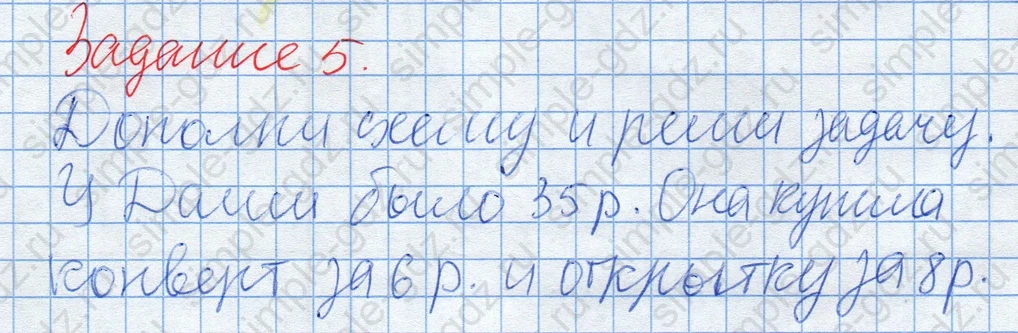 Задание 5.
Дополни схему и реши задачу.
У Даши было 35 р. Она купила
конверт за 6 р. и открытку за 8 р.